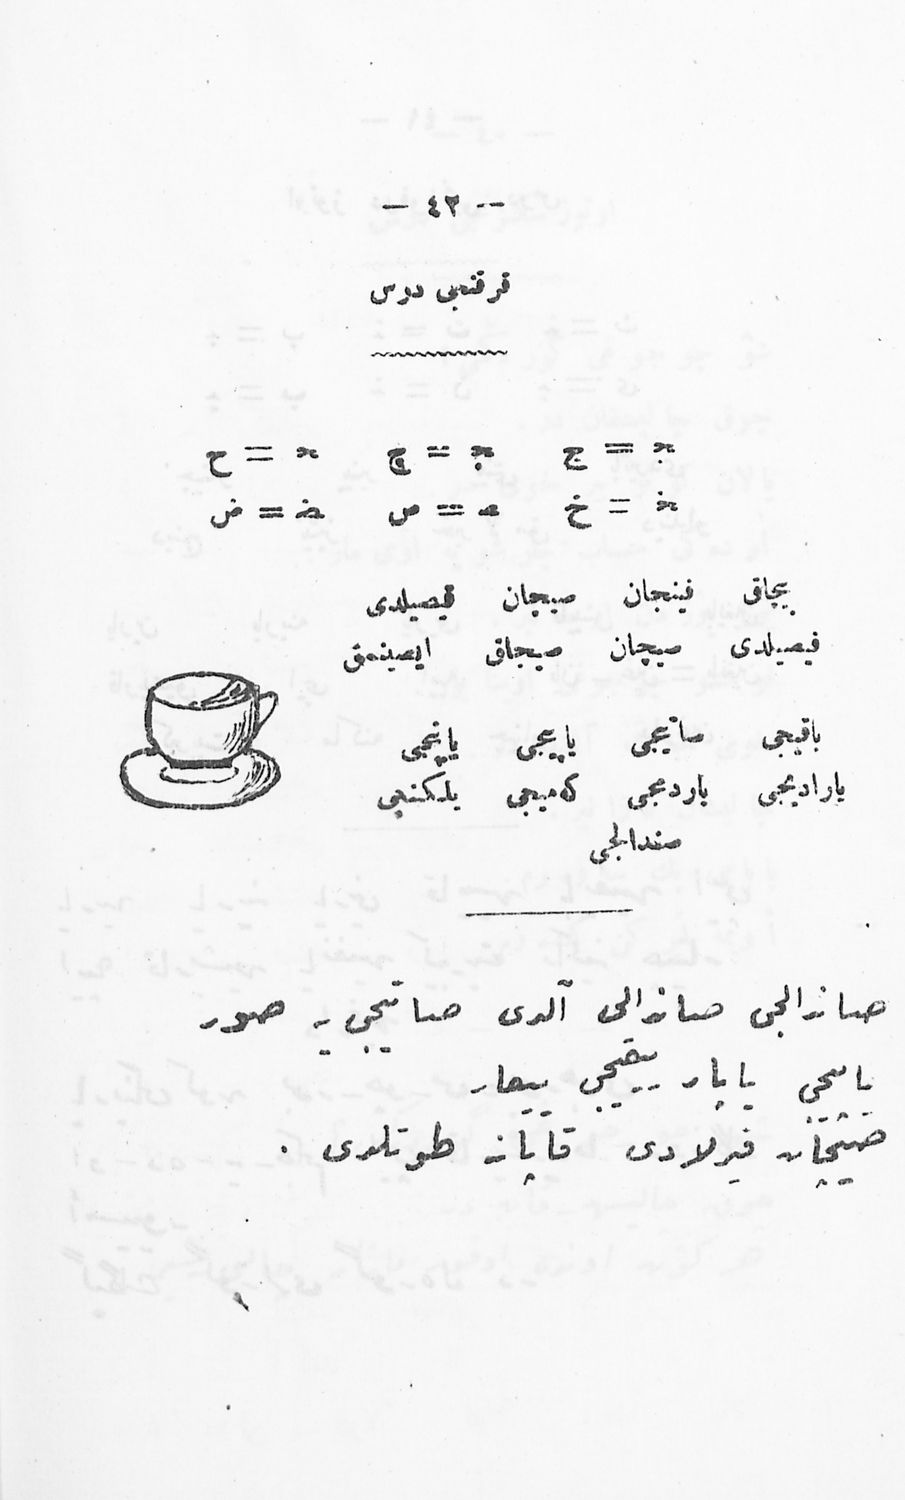 — ٤٢ —
قرقنجی درس
ج = ﺠ چ = ﭽ ح = ﺤ
خ = ﺨ ص = ﺼ ض = ﻀ
بچاق فینجان صیچان قیصیلدی
فیصیلدی صیچان صیجاق ایصینمق
باقیجی صاتیجی یاپیجی
یارادیجی یاردمجی کمیجی یلکنجی
صندالجی
صاندالجی صاندالی آلدی صاتیجی یه صور
یاپار ییقیجی ییقار
صیچان فیرلادی قاپان طوتلدی .